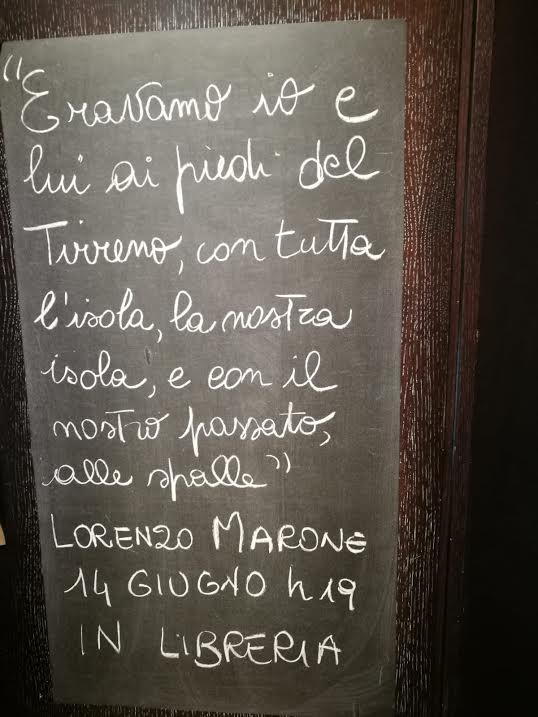 "Eravamo io e
lui ai piedi del
Tirreno, con tutta
l'isola, la nostra
isola, e con il
nostro passato,
alle spalle"
LORENZO MARONE
14 GIUGNO h 19
IN LIBRERIA